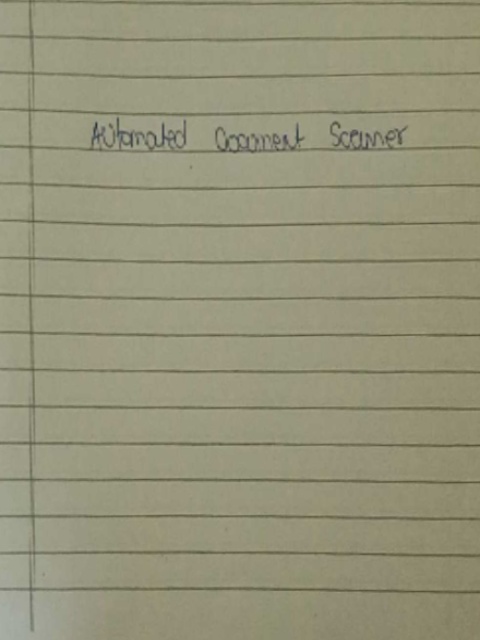 Automated Document Scanner